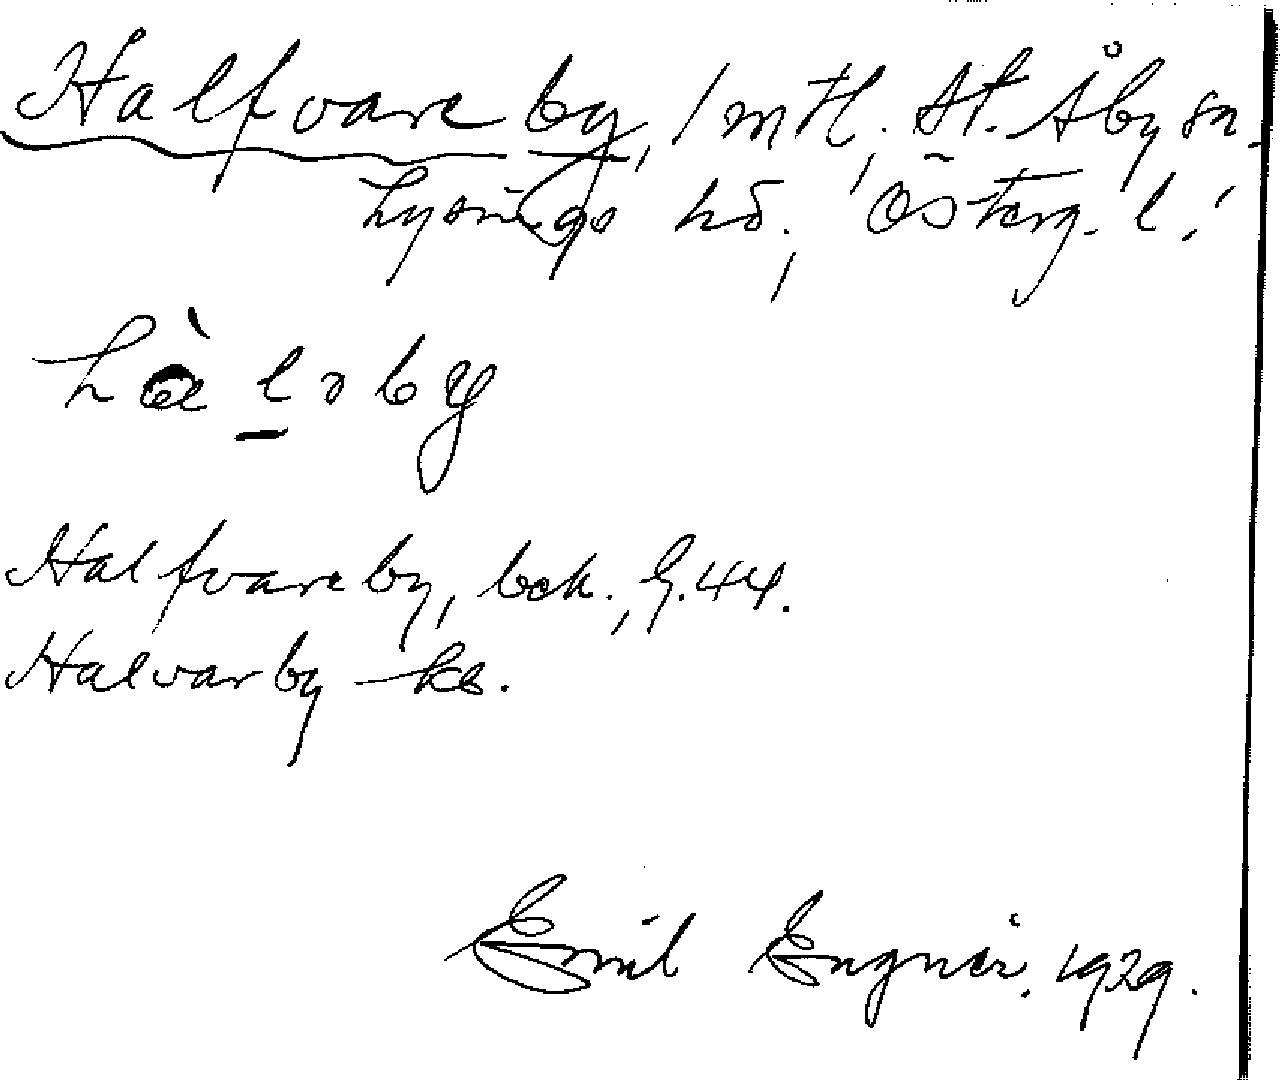 Halfvare by, 1 mtl. St. Åby sn.
Lysings hd., Österg. l.
hàlɔby
Halfvareby, bek., G. 44.
Halvarby ks.
Emil Engnér. 1929.